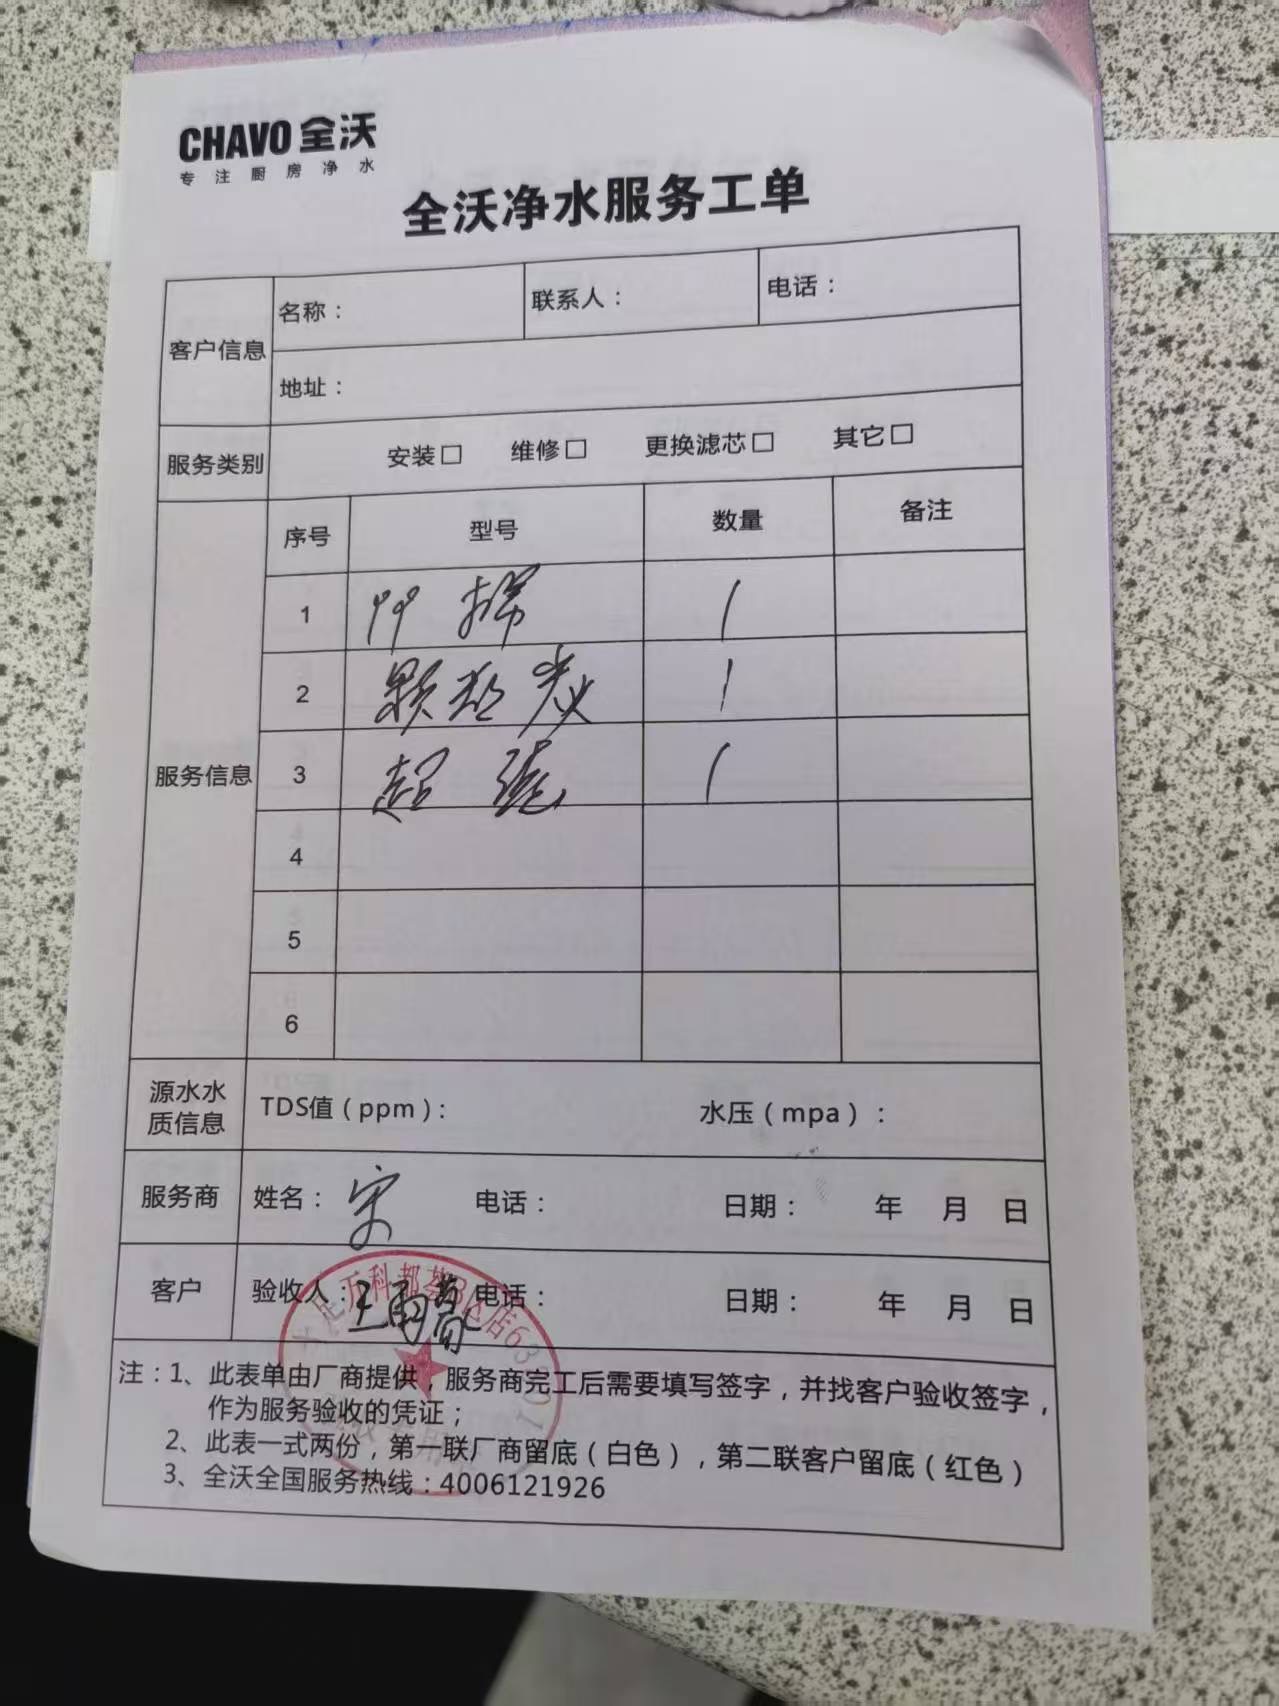 CHAVO 全沃
专注厨房净水
全沃净水服务工单
客户信息 名称： 联系人： 电话：
地址：
服务类别 安装□ 维修□ 更换滤芯□ 其它□
服务信息 序号 型号 数量 备注
1 PP 棉 1
2 颗粒炭 1
3 超滤 1
4
5
6
源水水质信息 TDS值（ppm）： 水压（mpa）：
服务商 姓名：宋 电话： 日期： 年 月 日
客户 验收人：王雨 电话： 日期： 年 月 日
注：1、此表单由厂商提供，服务商完工后需要填写签字，并找客户验收签字，
作为服务验收的凭证；
2、此表一式两份，第一联厂商留底（白色），第二联客户留底（红色）
3、全沃全国服务热线：4006121926